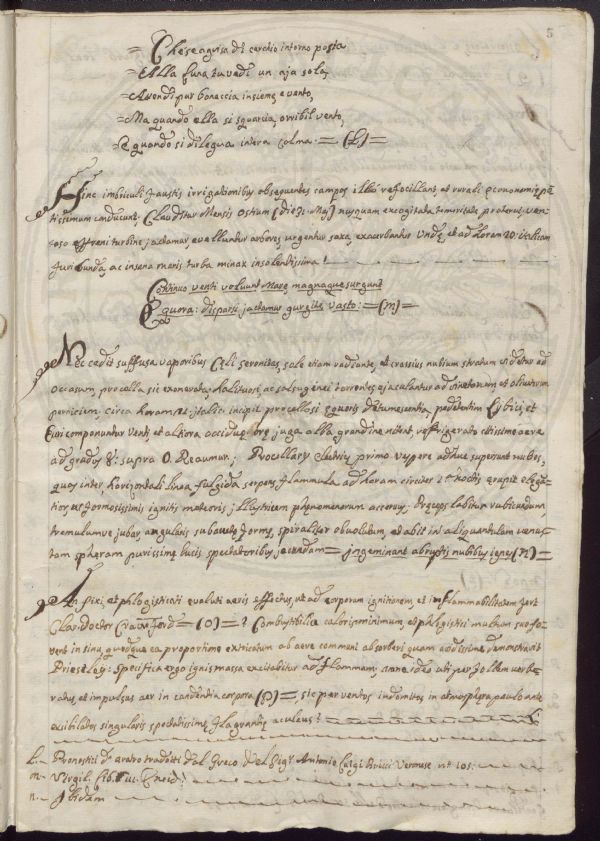 5
= Che se a guisa di cerchio intorno posta
= Alla Luna tu vedi un aja sola,
= Attendi pur bonaccia insieme, e vento,
= Ma quando ella si squarcia, orribil vento,
= E quando si dilegua intera calma. == (L) =
Hinc imbriculi faustis irrigationibus obsequentes campos illos refocillant, et rurali œconomiæ po-
tissimum conducunt. Clauditur Mensis ostrum (die 31. Maj) nusquam excogitata temeritate protervus, ven-
toso effreni turbine, jactamur evelluntur arbores, urgentur saxa, exacerbantur Undæ, et ad horam 20: italicam
furibunda, ac insana maris turba minax insolentissima!
Continuo venti volvunt Mare, magnaque surgunt
Æquora: dispersi jactamur gurgite vasto: = (m) =
Nec cedit suffusa vaporibus Cæli serenitas, sole etiam radiante, et crassius nubium stratum videtur ad
occasum, procella sic exonerata, halituosi, ac salsuginei torrentes ejaculantur ad vinetorum, et olivetum
perniciem. circa horam 22. italici incipit procellosi equoris detumescentia, pedetentim Lybici, et
Euri componuntur Venti, et altiora occiduæ oræ juga alba grandine nitent, refrigerato citissime aere
ad gradus 8: supra 0. Reaumur; Procellary primo vespere adhuc supersunt nubes,
quos inter horizontali linea fulgida serpens flammula ad horam circiter 2.am noctis erupit elegan-
tior, ut formosissimis ignitis meteoris, illustriem phænomenorum acervus. Præceps labitur rubicundum
tremulumve jubar, angularis subinde formæ, spiraliter obvolutum, et abit in aliquantulam venus-
tam spheram purissimæ lucis spectatoribus jucundam = ingeminant abruptis nubibus ignes (n) =
An fixi, et phlogisticati evoluti aeris effectus, ut ad corporum ignitionem, et inflammabilitatem fert
Clar. Doctor Crawford = (o) = ? Combustibilia caloris minimum, et phlogistici multum suo fo-
vent in sinu, quodque ea proportione extricatum ab aere communi absorberi quam addissime demonstravit
Priestley: Specifica ergo ignis massa excitabitur ad flammam, nonne ideo uti per follem verbe-
ratus et impulsus aer in candentia corpora (p) = sic per ventos indomitos in atmosphera paulo ante
exibilatos singularis spectatissimæ flagrantiæ aculeus?
L. - Pronostici di Arato tradotti dal Greco dal Sig.r Antonio Luigi Bricci Veronese v. 105.
m. - Virgil. Lib. Eneid.
n. - Ibidem